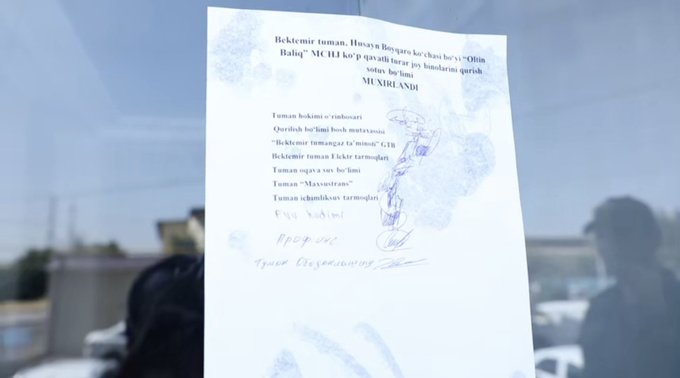 Bektemir tuman, Husayn Boyqaro ko‘chasi bo‘yi “Oltin
Baliq” MCHJ ko‘p qavatli turar joy binolarini qurish
sotuv bo‘limi
MUXIRLANDI
Tuman hokimi o‘rinbosari
Qurilish bo‘limi bosh mutaxassisi
“Bektemir tumangaz ta’minoti” GTB
Bektemir tuman Elektr tarmoqlari
Tuman oqava suv bo‘limi
Tuman “Maxsustrans”
Tuman ichimliksuv tarmoqlari
FVV hodimi
Проф. инс
Туман